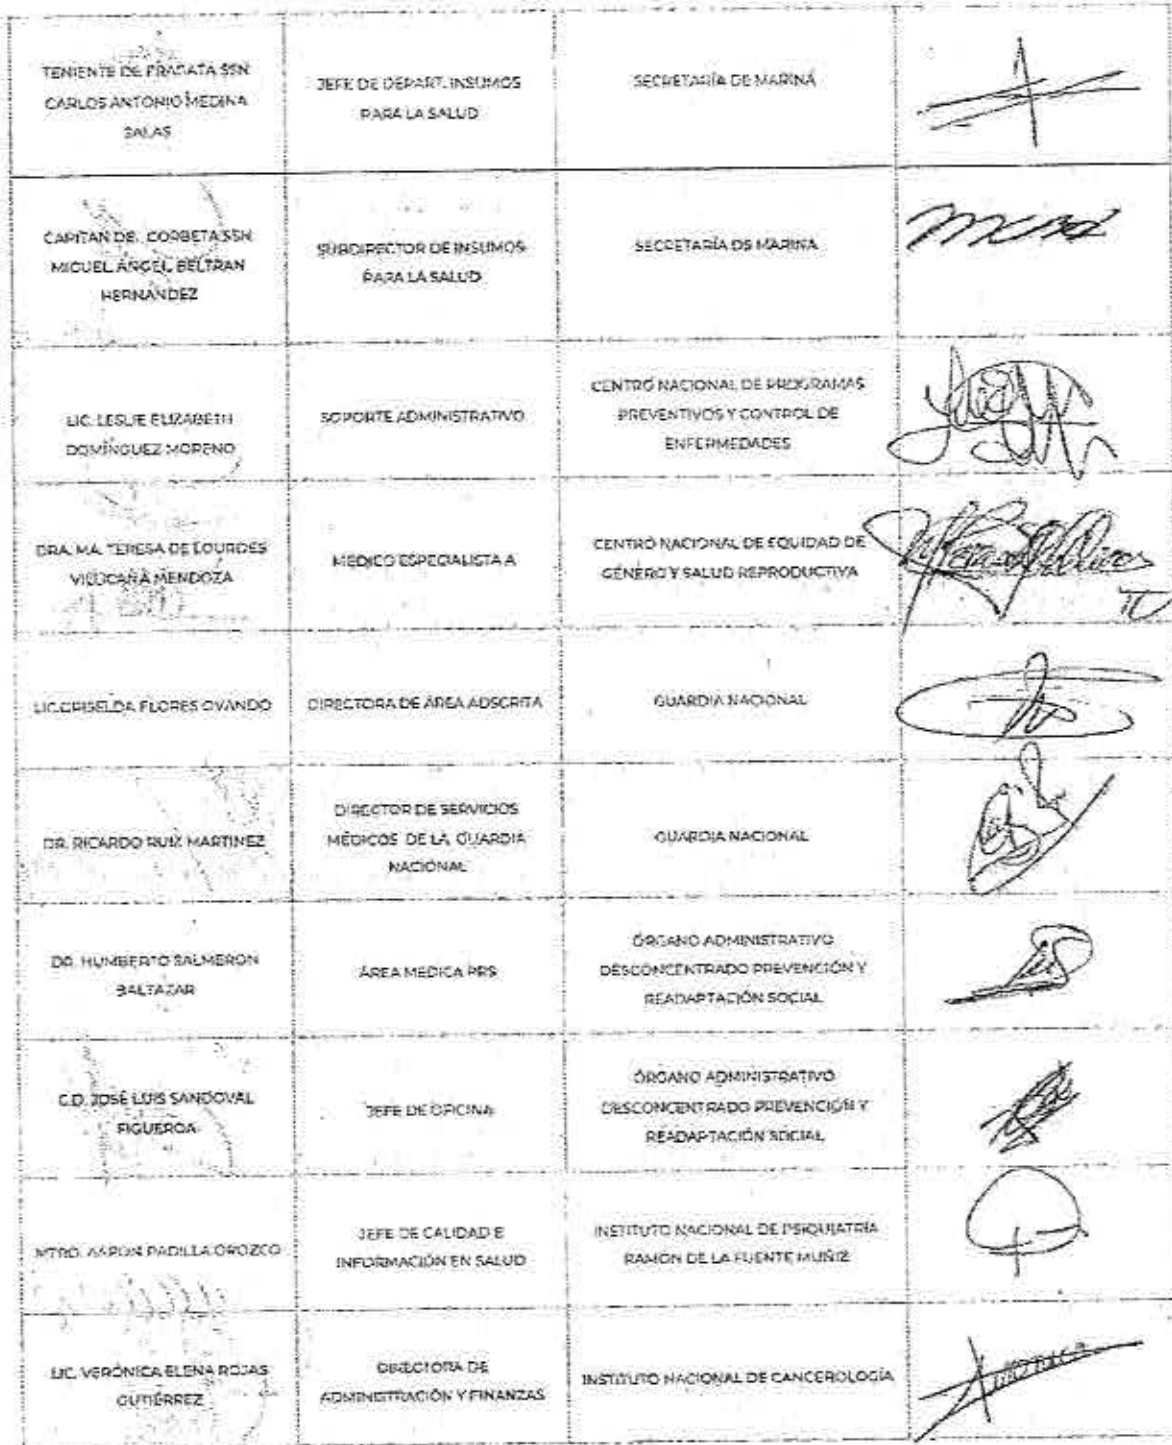 TENIENTE DE FRAGATA SSN
CARLOS ANTONIO MEDINA
SALAS
JEFE DE DEPART. INSUMOS
PARA LA SALUD
SECRETARÍA DE MARINA
CAPITAN DE CORBETA SSN
MIGUEL ÁNGEL BELTRAN
HERNÁNDEZ
SUBDIRECTOR DE INSUMOS
PARA LA SALUD
SECRETARÍA DE MARINA
LIC. LESLIE ELIZABETH
DOMÍNGUEZ MORENO
SOPORTE ADMINISTRATIVO
CENTRO NACIONAL DE PROGRAMAS
PREVENTIVOS Y CONTROL DE
ENFERMEDADES
DRA. MA. TERESA DE LOURDES
VILLICAÑA MENDOZA
MÉDICO ESPECIALISTA A
CENTRO NACIONAL DE EQUIDAD DE
GÉNERO Y SALUD REPRODUCTIVA
LIC. GRISELDA FLORES OVANDO
DIRECTORA DE ÁREA ADSCRITA
GUARDIA NACIONAL
DR. RICARDO RUIZ MARTINEZ
DIRECTOR DE SERVICIOS
MÉDICOS DE LA GUARDIA
NACIONAL
GUARDIA NACIONAL
DR. HUMBERTO SALMERON
BALTAZAR
ÁREA MEDICA PRS
ÓRGANO ADMINISTRATIVO
DESCONCENTRADO PREVENCIÓN Y
READAPTACIÓN SOCIAL
C.D. JOSÉ LUIS SANDOVAL
FIGUEROA
JEFE DE OFICINA
ÓRGANO ADMINISTRATIVO
DESCONCENTRADO PREVENCIÓN Y
READAPTACIÓN SOCIAL
MTRO. AARON PADILLA OROZCO
JEFE DE CALIDAD E
INFORMACIÓN EN SALUD
INSTITUTO NACIONAL DE PSIQUIATRÍA
RAMÓN DE LA FUENTE MUÑIZ
LIC. VERÓNICA ELENA ROJAS
GUTIÉRREZ
DIRECTORA DE
ADMINISTRACIÓN Y FINANZAS
INSTITUTO NACIONAL DE CANCEROLOGÍA